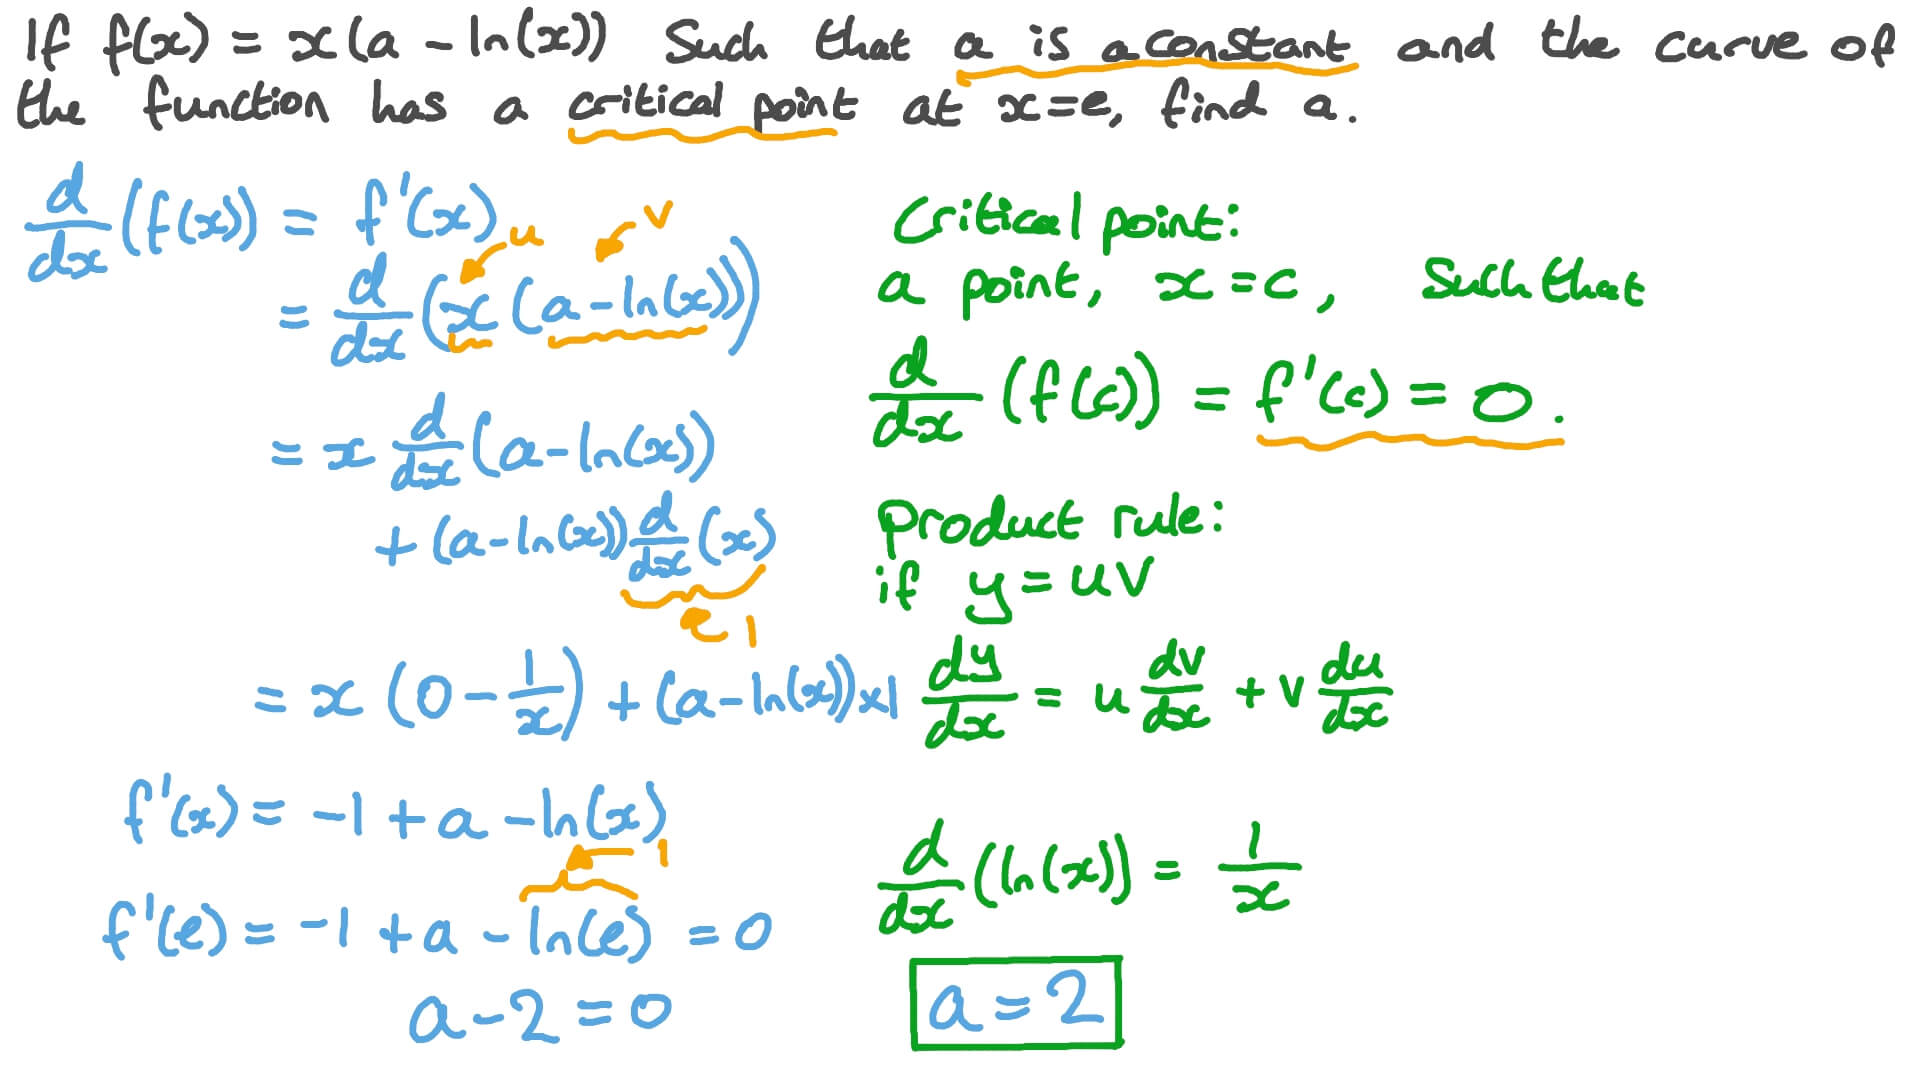 If f(x) = x(a - ln(x)) such that a is a constant and the curve of
the function has a critical point at x=e, find a.
d/dx (f(x)) = f'(x)
u v
= d/dx (x (a-ln(x)))
= x d/dx (a-ln(x))
+ (a-ln(x)) d/dx (x)
1
= x (0 - 1/x) + (a-ln(x)) x1
f'(x) = -1 + a - ln(x)
1
f'(e) = -1 + a - ln(e) = 0
a-2 = 0
Critical point:
a point, x = c, such that
d/dx (f(c)) = f'(c) = 0.
product rule:
if y = uv
dy/dx = u dv/dx + v du/dx
d/dx (ln(x)) = 1/x
a = 2